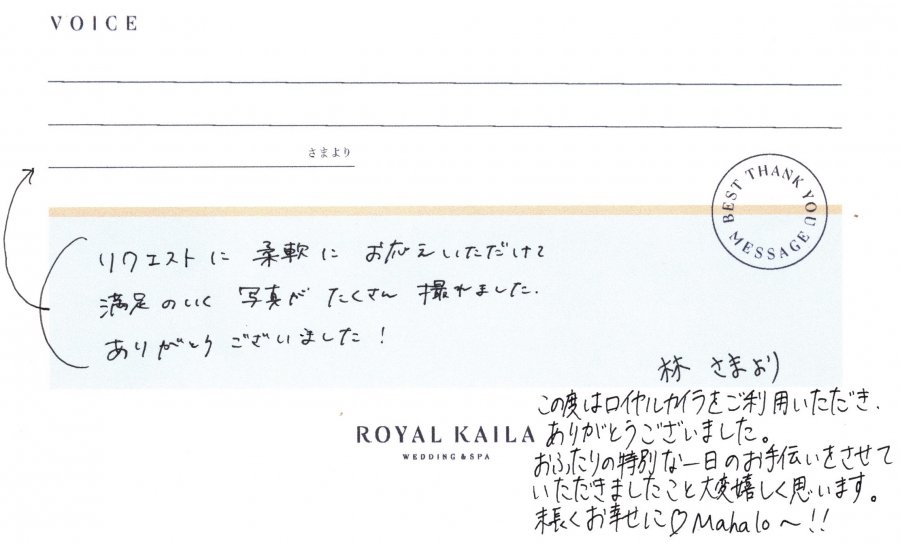 VOICE
さまより
BEST THANK YOU
MESSAGE
リクエストに 柔軟に お応えいただけて
満足のいく 写真が たくさん 撮れました.
ありがとうございました!
林 さまより
この度はロイヤルカイラをご利用いただき、
ありがとうございました。
おふたりの特別な一日のお手伝いをさせて
いただきましたこと大変嬉しく思います。
末長くお幸せに♡ Mahalo〜!!
ROYAL KAILA
WEDDING & SPA